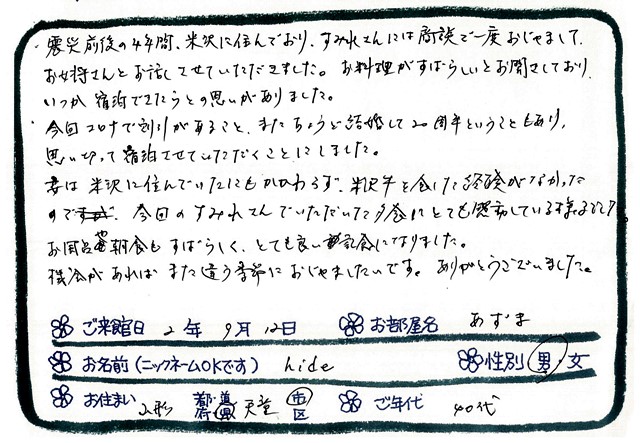 震災前後の4年間、米沢に住んでおり、すみれさんには商談で一度おじゃまして、
お女将さんとお話しさせていただきました。お料理がすばらしいとお聞きしており、
いつか宿泊できたらとの思いがありました。
今回コロナで割引があること、またちょうど結婚して20周年ということもあり、
思い切って宿泊させていただくことにしました。
妻は米沢に住んでいたにもかかわらず、米沢牛を食した経験がなかった
のですが、今回のすみれさんでいただいた夕食にとても感動している様子でした
お風呂や朝食もすばらしく、とても良い記念になりました。
機会があればまた違う季節におじゃましたいです。ありがとうございました。
ご来館日 2年 9月12日 お部屋名 あずま
お名前(ニックネームOKです) hide 性別 男 女
お住まい 山形 都・道 府・県 天童 市 区 ご年代 40代